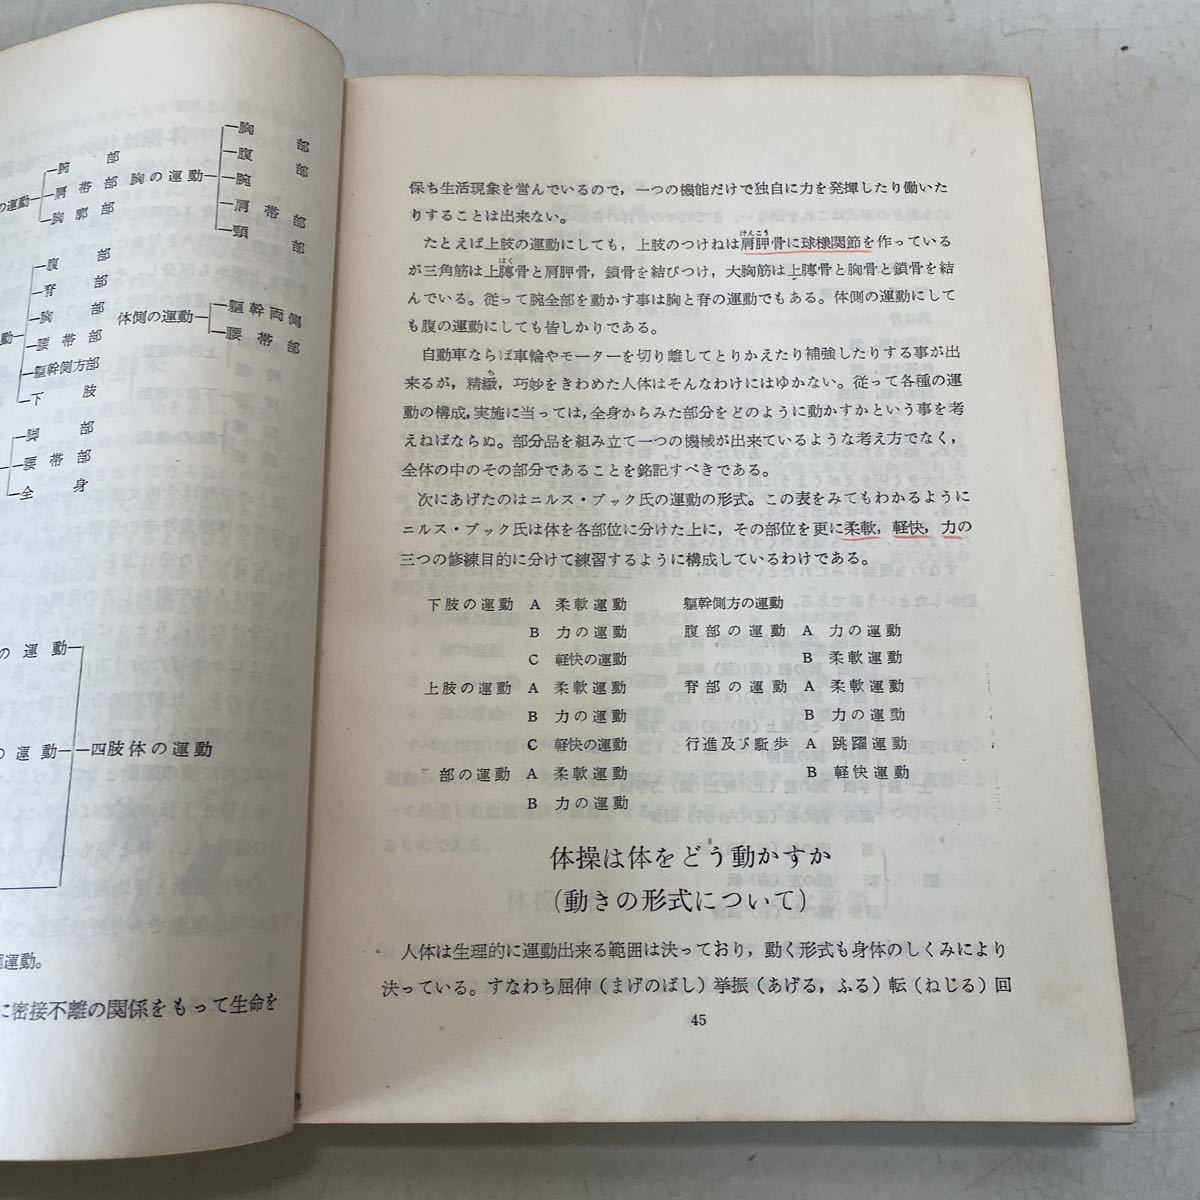 の運動
腕部
肩帯部
胸郭部
胸の運動
胸部
腹部
腕
肩帯部
頸部
動
腹部
脊部
胸部
腰帯部
軀幹側方部
下肢
体側の運動
軀幹両側
腰帯部
脚部
腰帯部
全身
の運動
の運動
四肢体の運動
運動。
に密接不離の関係をもって生命を
保ち生活現象を営んでいるので，一つの機能だけで独自に力を発揮したり働いた
りすることは出来ない。
たとえば上肢の運動にしても，上肢のつけねは肩胛骨に球様関節を作っている
けんこう
が三角筋は上膊骨と肩胛骨，鎖骨を結びつけ，大胸筋は上膊骨と胸骨と鎖骨を結
はく
んでいる。従って腕全部を動かす事は胸と脊の運動でもある。体側の運動にして
も腹の運動にしても皆しかりである。
自動車ならば車輪やモーターを切り離してとりかえたり補強したりする事が出
来るが，精緻，巧妙をきわめた人体はそんなわけにはゆかない。従って各種の運
ち
動の構成，実施に当っては，全身からみた部分をどのように動かすかという事を考
えねばならぬ。部分品を組み立て一つの機械が出来ているような考え方でなく，
全体の中のその部分であることを銘記すべきである。
次にあげたのはニルス・ブック氏の運動の形式。この表をみてもわかるように
ニルス・ブック氏は体を各部位に分けた上に，その部位を更に柔軟，軽快，力の
三つの修練目的に分けて練習するように構成しているわけである。
下肢の運動 A 柔軟運動
B 力の運動
C 軽快の運動
上肢の運動 A 柔軟運動
B 力の運動
C 軽快の運動
部の運動 A 柔軟運動
B 力の運動
軀幹側方の運動
腹部の運動 A 力の運動
B 柔軟運動
脊部の運動 A 柔軟運動
B 力の運動
行進及び駈歩 A 跳躍運動
B 軽快運動
体操は体をどう動かすか
（動きの形式について）
人体は生理的に運動出来る範囲は決っており，動く形式も身体のしくみにより
決っている。すなわち屈伸（まげのばし）挙振（あげる，ふる）転（ねじる）回
45